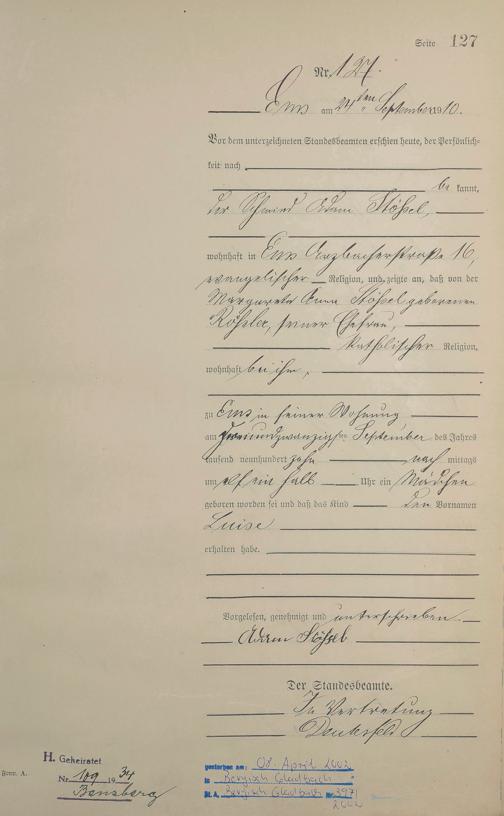 Seite 127
Nr. 127.
Ems am 24ten September 1910.
Vor dem unterzeichneten Standesbeamten erschien heute, der Persönlich-
keit nach
be kannt,
der Schmied Adam Stößel,
wohnhaft in Ems Arzbacherstraße 16,
evangelischer Religion, und zeigte an, daß von der
Margarete Anna Stößel geborenen
Rößler, seiner Ehefrau,
katholischer Religion,
wohnhaft bei ihm,
zu Ems in seiner Wohnung
am zweiundzwanzigsten September des Jahres
tausend neunhundert zehn nach mittags
um elf ein halb Uhr ein Mädchen
geboren worden sei und daß das Kind den Vornamen
Luise
erhalten habe.
Vorgelesen, genehmigt und unterschrieben.
Adam Stößel
Der Standesbeamte.
In Vertretung
H. Geheiratet
Nr. 109 1934
Bensberg
Form. A.
gestorben am: 08. April 2002
in Bergisch Gladbach
St. A. Bergisch Gladbach Nr. 397/
2002